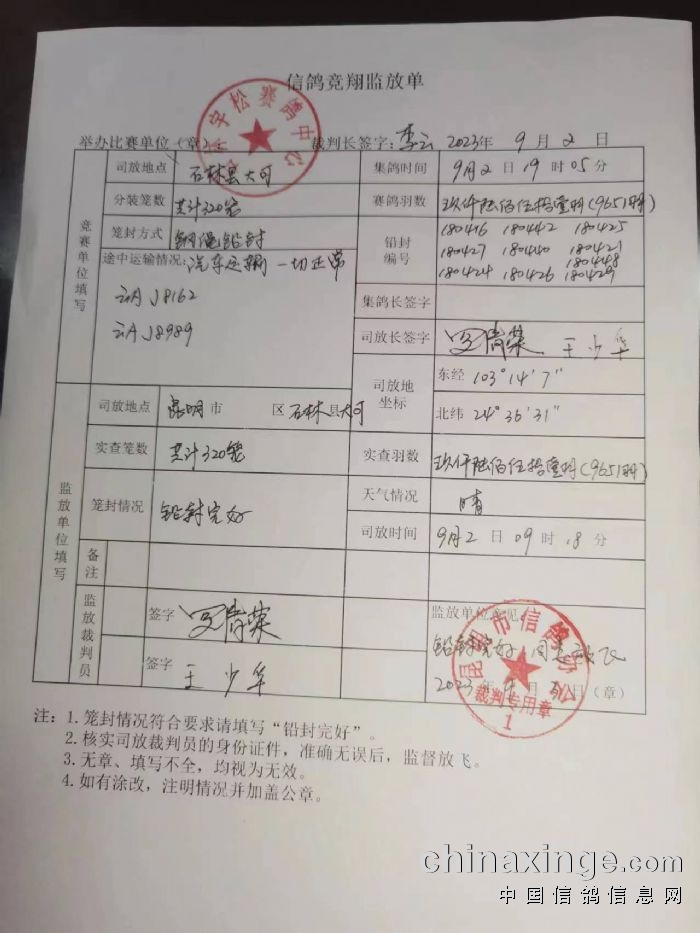 信鸽竞翔监放单
举办比赛单位(章): 裁判长签字: 李云 2023年 9 月 2 日
宇松赛鸽中心
司放地点 石林县大可 集鸽时间 9月2日19时05分
分装笼数 共计320笼 赛鸽羽数 玖仟陆佰伍拾壹羽(9651羽)
笼封方式 钢绳铅封 铅封编号 180416 180442 180425
180427 180440 180421
180448
180424 180426 180429
竞赛单位填写
途中运输情况: 汽车运输 一切正常
云A J8162
云A J8989
集鸽长签字
司放长签字 王少华
司放地坐标 东经 103°14'7"
北纬 24°36'31"
司放地点 昆明市 区石林县大可
实查笼数 共计320笼 实查羽数 玖仟陆佰伍拾壹羽(9651羽)
监放单位填写
笼封情况 铅封完好 天气情况 晴
司放时间 9月2日09时18分
备注
监放裁判员 签字
签字 王少华
监放单位意见:
铅封完好,同意放飞
2023年 月 日(章)
昆明市信鸽协会
裁判专用章
1
注: 1. 笼封情况符合要求请填写“铅封完好”。
2. 核实司放裁判员的身份证件,准确无误后,监督放飞。
3. 无章、填写不全,均视为无效。
4. 如有涂改,注明情况并加盖公章。
chinaxinge.com
中国信鸽信息网